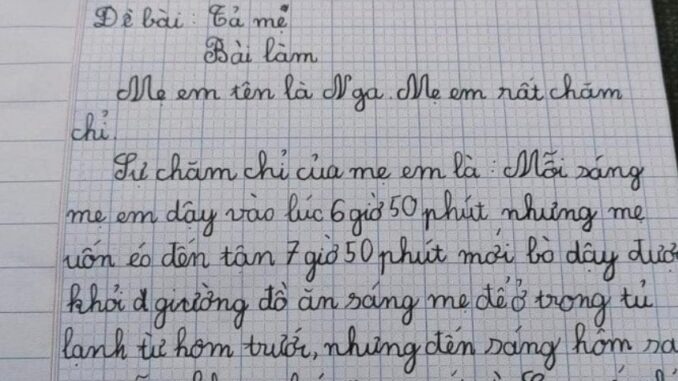 Đề bài: Tả mẹ
Bài làm
Mẹ em tên là Nga. Mẹ em rất chăm
chỉ.
Sự chăm chỉ của mẹ em là: Mỗi sáng
mẹ em dậy vào lúc 6 giờ 50 phút nhưng mẹ
uốn éo đến tận 7 giờ 50 phút mới bò dậy đượ
khỏi giường đồ ăn sáng mẹ để ở trong tủ
lạnh từ hôm trước, nhưng đến sáng hôm sa